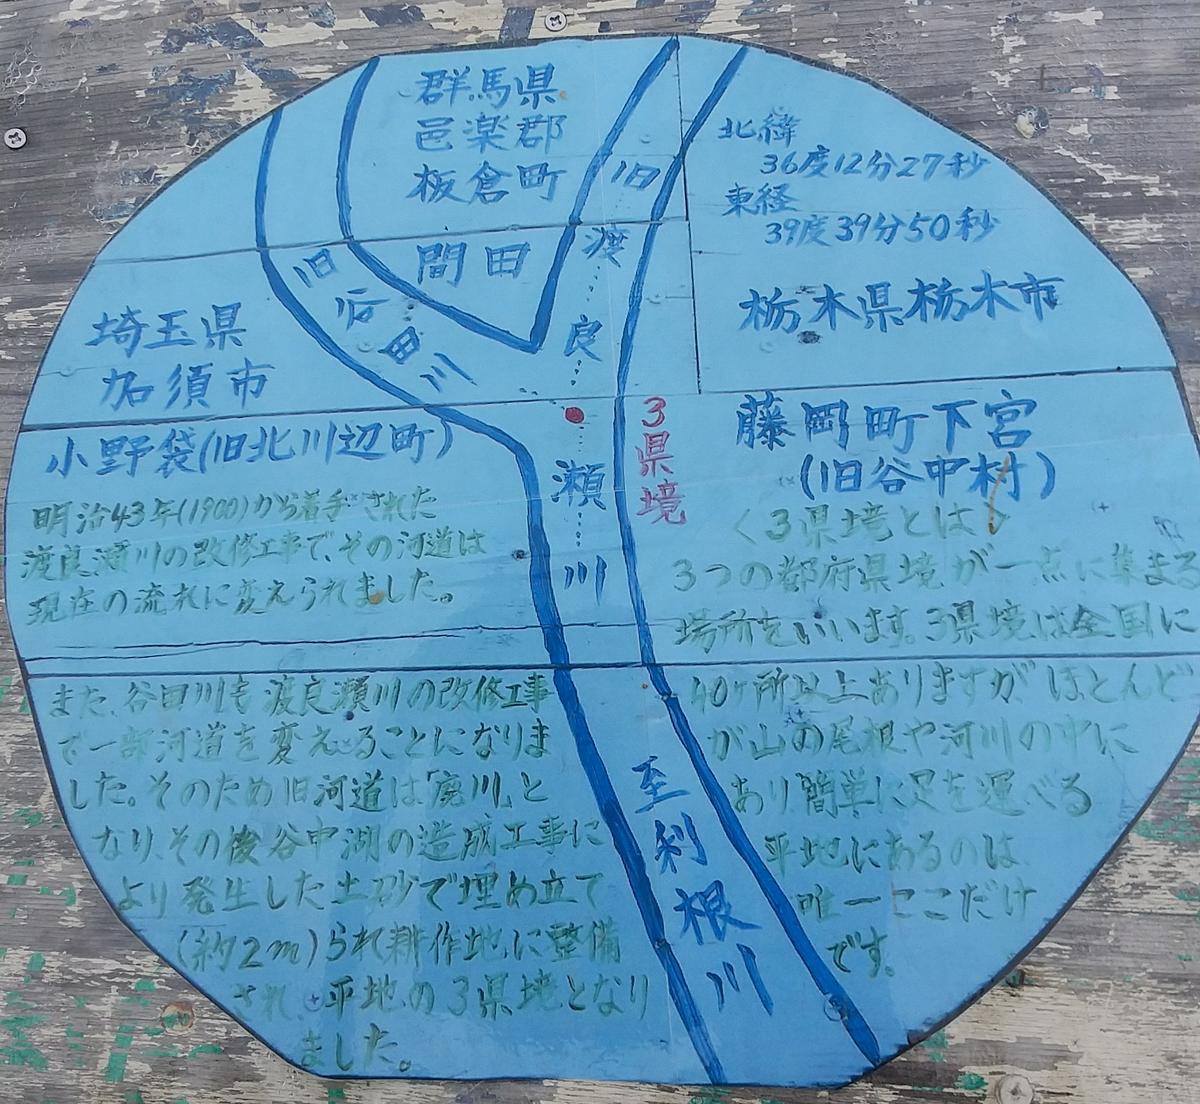 群馬県
邑楽郡
板倉町
間田
旧谷田川
旧渡良瀬川
北緯
36度12分27秒
東経
39度39分50秒
栃木県栃木市
藤岡町下宮
(旧谷中村)
埼玉県
加須市
小野袋(旧北川辺町)
3県境
明治43年(1900)から着手された
渡良瀬川の改修工事で、その河道は
現在の流れに変えられました。
また、谷田川も渡良瀬川の改修工事
で一部河道を変えることになりま
した。そのため旧河道は「廃川」と
なり、その後谷中湖の造成工事に
より発生した土砂で埋め立て
(約2m)られ耕作地に整備
され、平地の3県境となり
ました。
<3県境とは>
3つの都府県境が一点に集まる
場所をいいます。3県境は全国に
40ヶ所以上ありますがほとんど
が山の尾根や河川の中に
あり簡単に足を運べる
平地にあるのは
唯一ここだけ
です。
至利根川